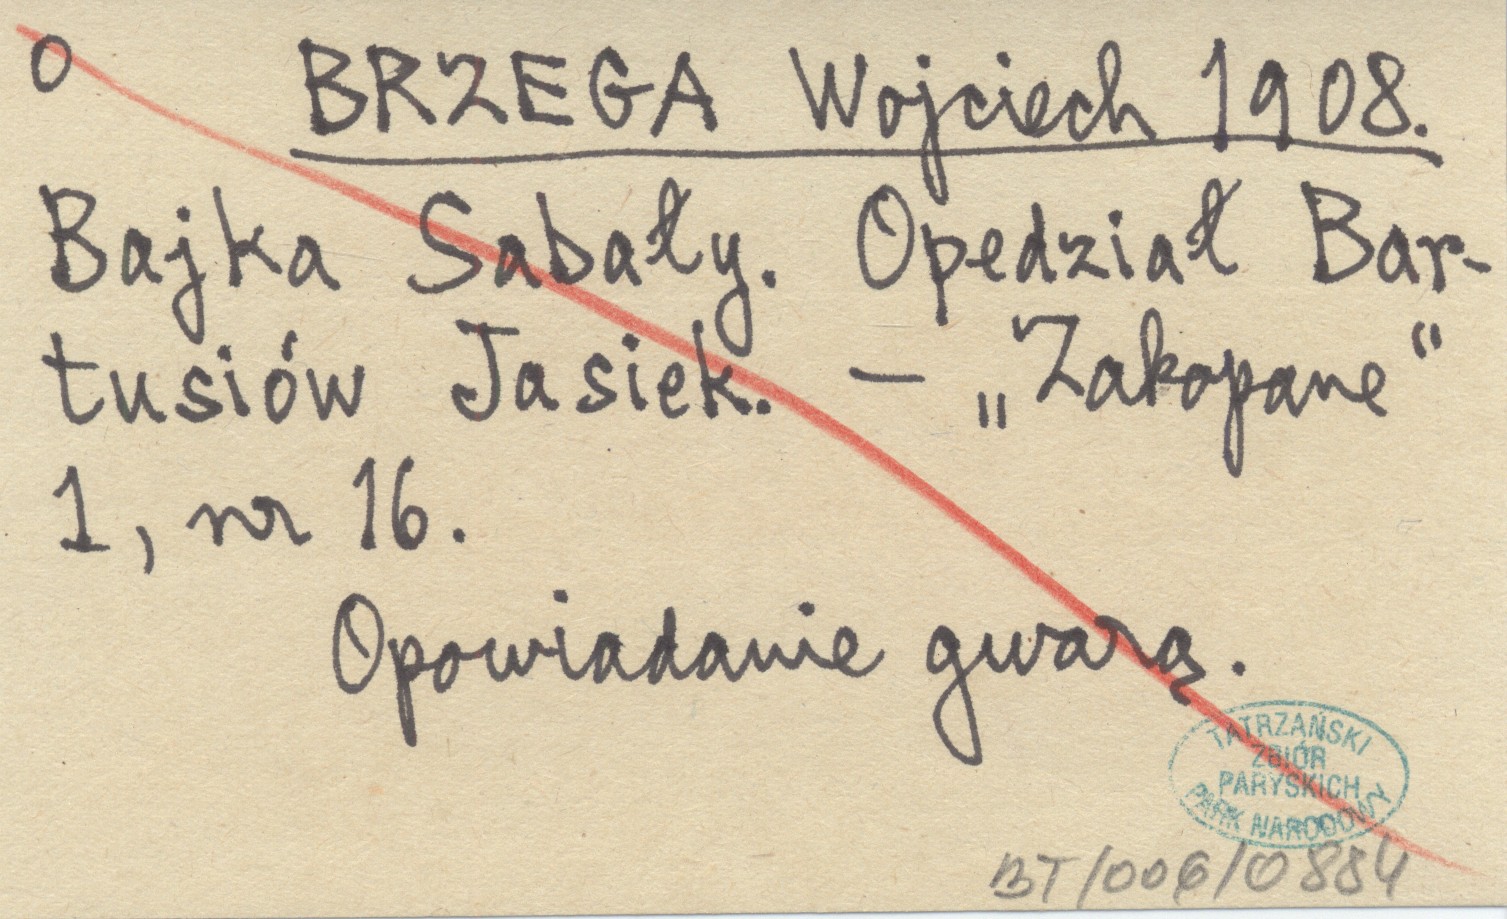 o BRZEGA Wojciech 1908.
Bajka Sabały. Opedział Bar-
tusiów Jasiek. — „Zakopane“
1, nr 16.
Opowiadanie gwarą.
TATRZAŃSKI
ZBIÓR
PARYSKICH
PARK NARODOWY
BT/006/0884